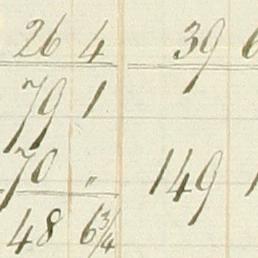 26 4 39 6
79 1
70 " 149 1
48 6 3/4